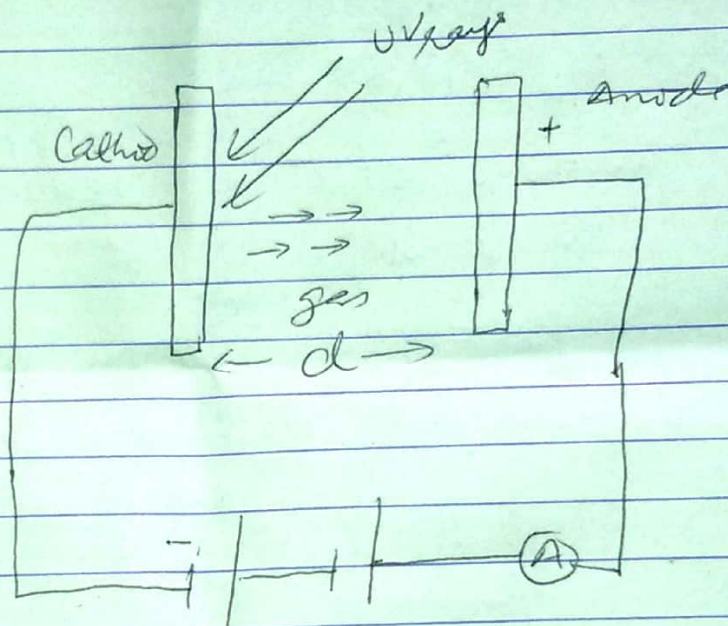 UV rays
Anode
Cathod
+
gas
d
-
A